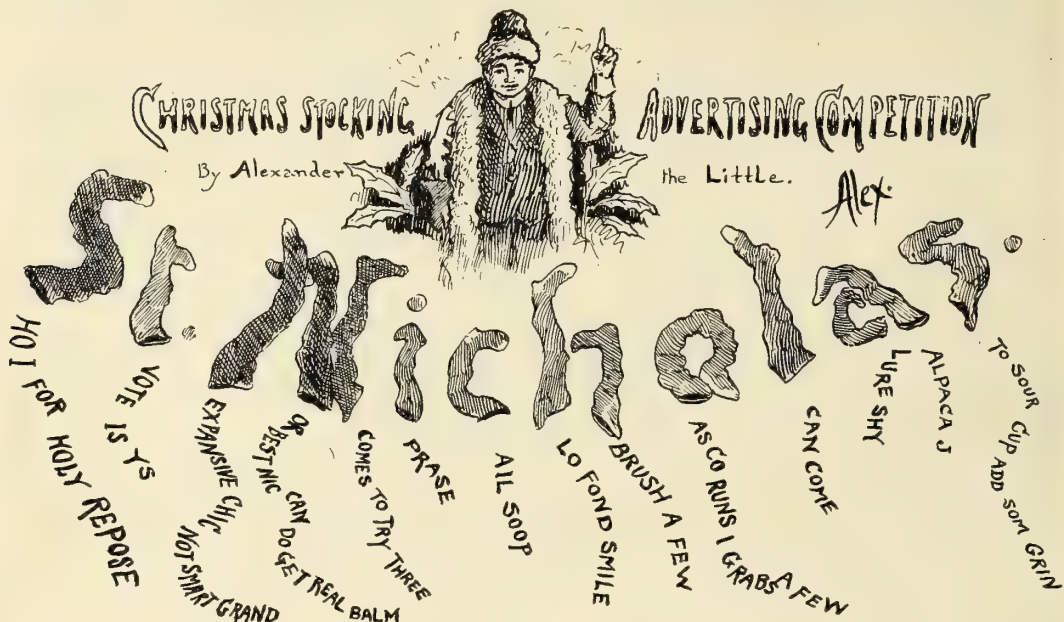 CHRISTMAS STOCKING ADVERTISING COMPETITION
By Alexander the Little.
Alex.
St. Nicholas.
HO I FOR HOLY REPOSE
VOTE IS YS
EXPANSIVE CHIC
NOT SMART GRAND
BEST NIC CAN
DO GET REAL BALM
COMES TO TRY THREE
PRASE
AIL SOOP
LO FOND SMILE
BRUSH A FEW
AS CO RUNS I GRABS A FEW
CAN COME
LURE SHY
ALPACA J
TO SOUR CUP ADD SOM GRIN